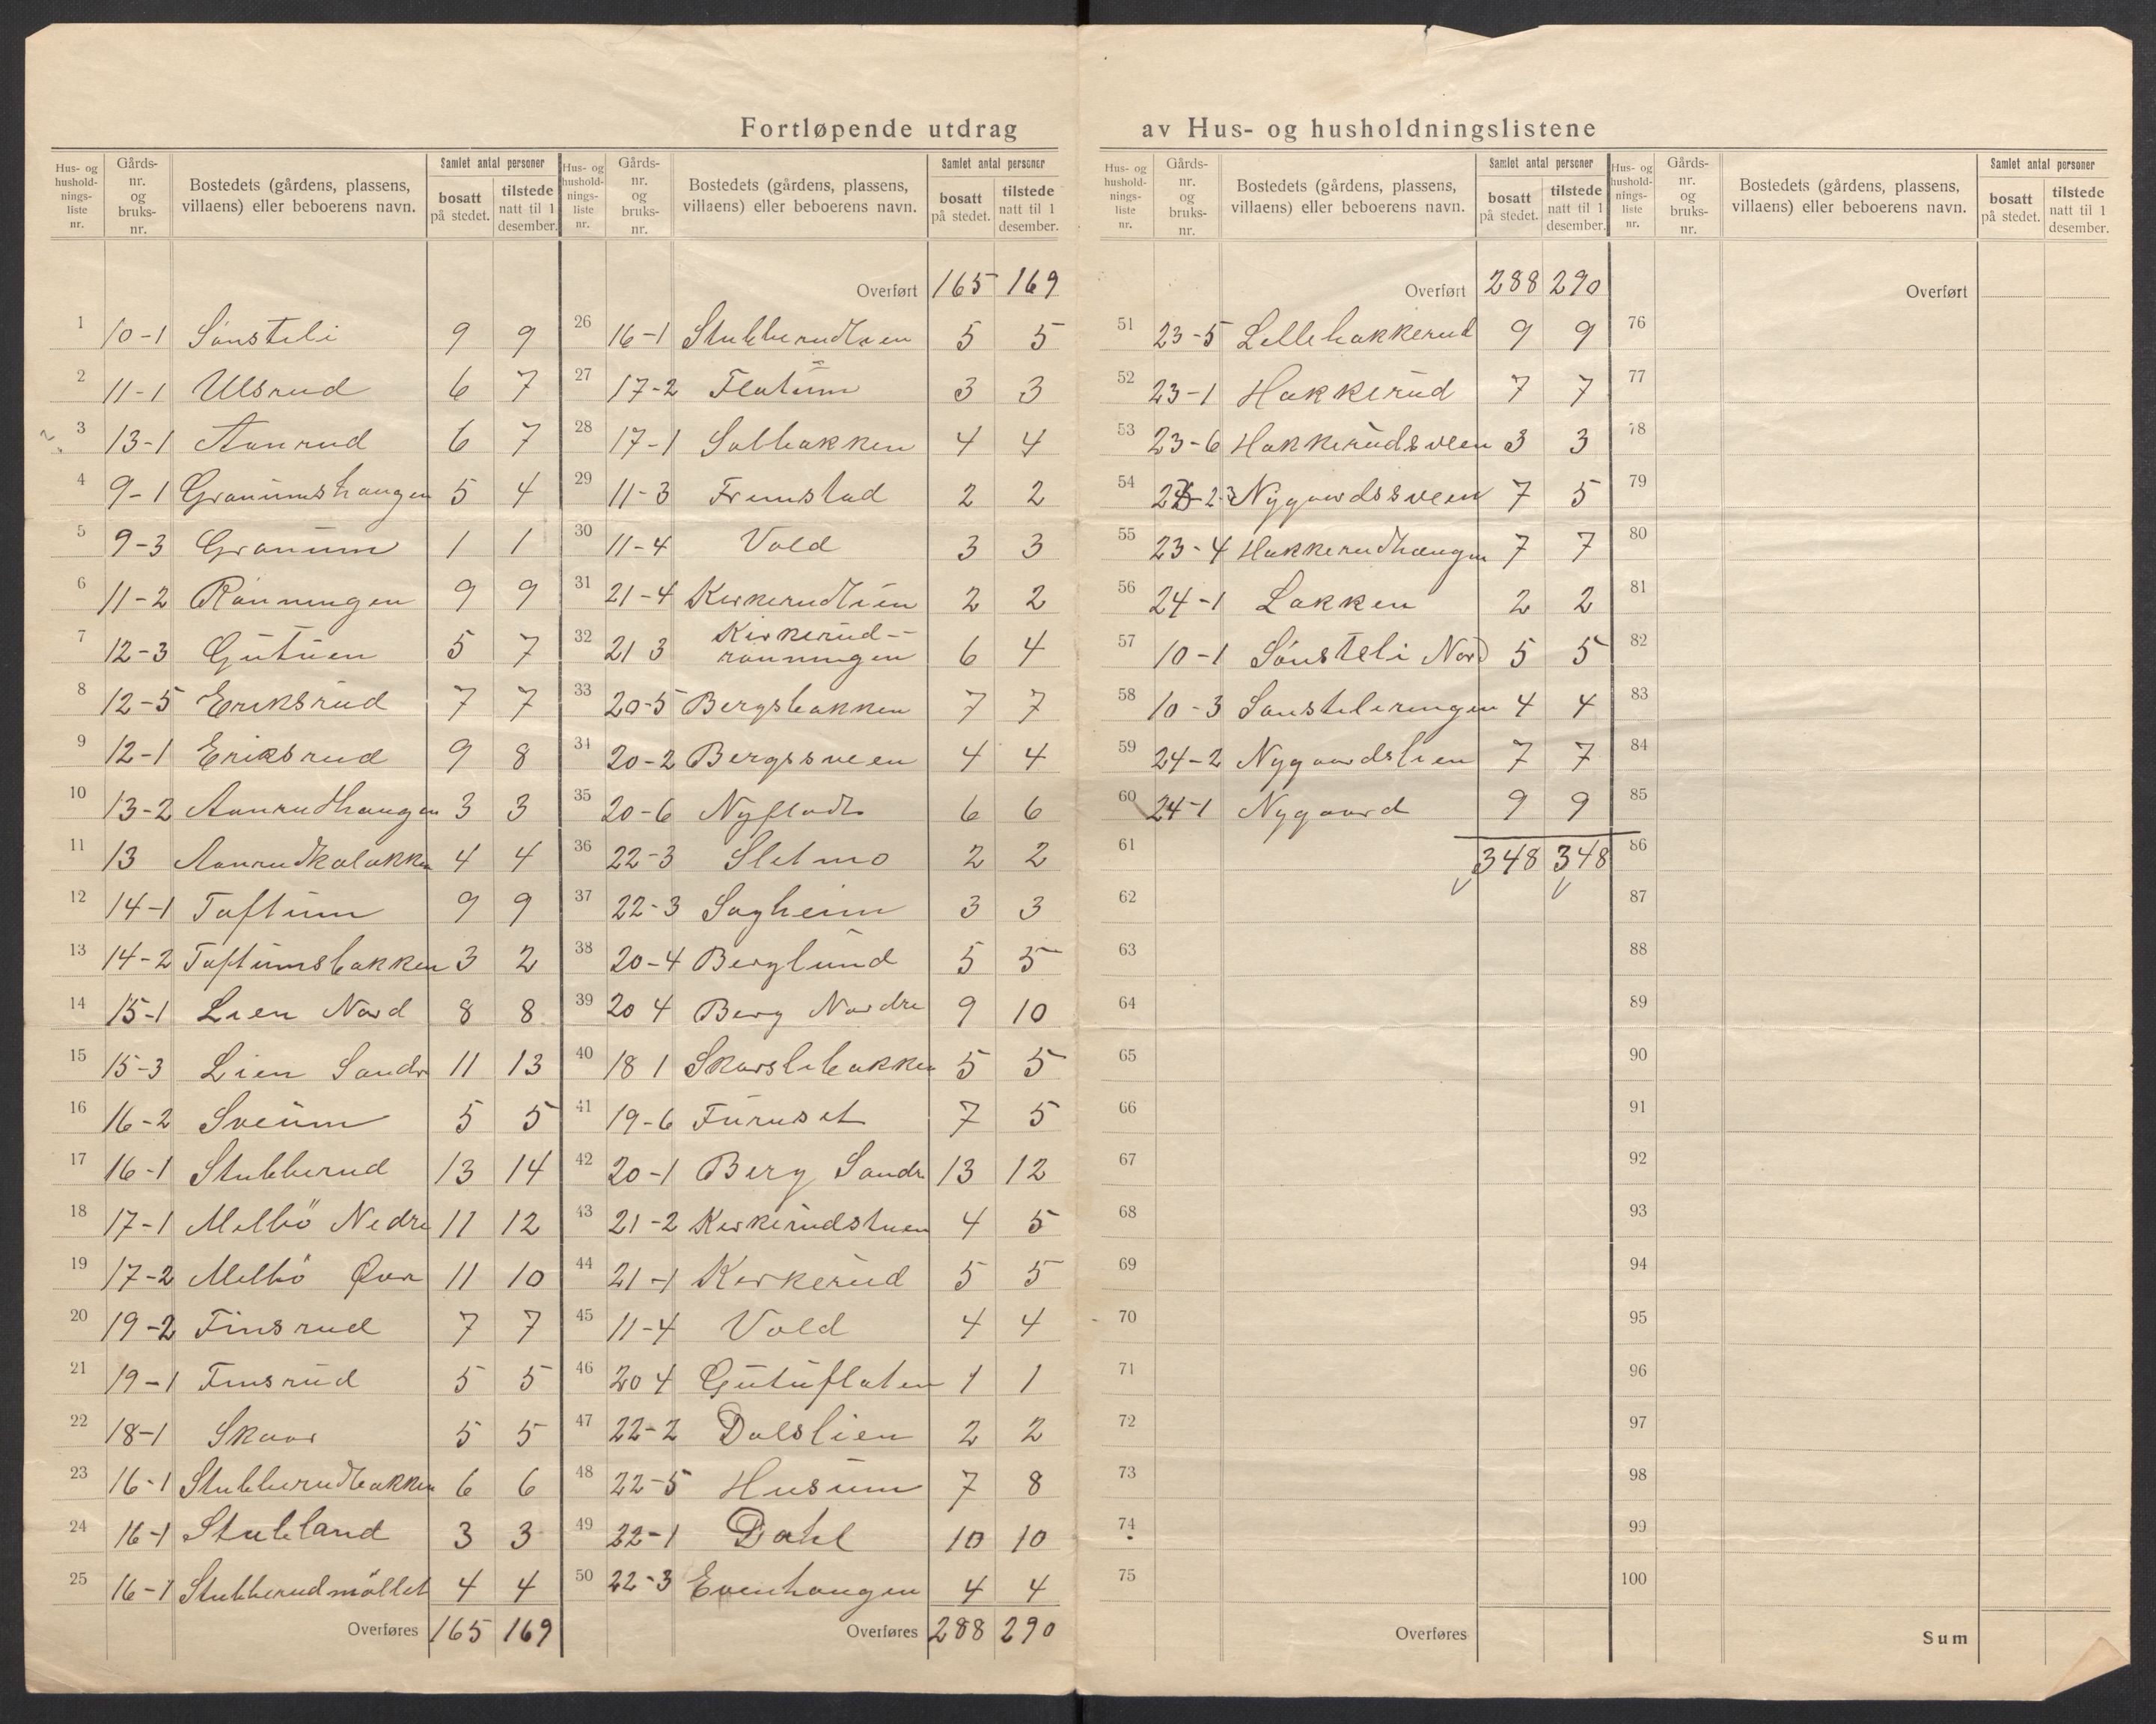 Fortløpende utdrag av Hus- og husholdningslistene
Hus- og hushold-nings-liste nr. Gårds-nr. og bruks-nr. Bostedets (gårdens, plassens, villaens) eller beboerens navn. Samlet antal personer bosatt på stedet. tilstede natt til 1 desember.
1 10-1 Sønsteli 9 9
2 11-1 Ulsrud 6 7
3 13-1 Aanrud 6 7
4 9-1 Granumshaugen 5 4
5 9-3 Granum 1 1
6 11-2 Rønningen 9 9
7 12-3 Gutuen 5 7
8 12-5 Eriksrud 7 7
9 12-1 Eriksrud 9 8
10 13-2 Aanrudhaugen 3 3
11 13 Aanrudkoløkken 4 4
12 14-1 Toftum 9 9
13 14-2 Toftumsbakken 3 2
14 15-1 Lien Nord 8 8
15 15-3 Lien Søndre 11 13
16 16-2 Sveum 5 5
17 16-1 Stubberud 13 14
18 17-1 Melbö Nedre 11 12
19 17-2 Melbö Øvre 11 10
20 19-2 Finsrud 7 7
21 19-1 Finsrud 5 5
22 18-1 Skaar 5 5
23 16-1 Stubberudbakken 6 6
24 16-1 Stubland 3 3
25 16-1 Stubberudmöllen 4 4
Overføres 165 169
Hus- og hushold-nings-liste nr. Gårds-nr. og bruks-nr. Bostedets (gårdens, plassens, villaens) eller beboerens navn. Samlet antal personer bosatt på stedet. tilstede natt til 1 desember.
Overført 165 169
26 16-1 Stubberudlien 5 5
27 17-2 Flatum 3 3
28 17-1 Solbakken 4 4
29 11-3 Fremstad 2 2
30 11-4 Vold 3 3
31 21-4 Kirkerudlien 2 2
32 21 3 Kirkerud-
rønningen 6 4
33 20-5 Bergsbakken 7 7
34 20-2 Bergssveen 4 4
35 20-6 Nyflodt 6 6
36 22-3 Sletmo 2 2
37 22-3 Sagheim 3 3
38 20-4 Berglund 5 5
39 20 4 Berg Nordre 9 10
40 18 1 Skarslibakken 5 5
41 19-6 Furuset 7 5
42 20-1 Berg Søndre 13 12
43 21-2 Kirkerudstuen 4 5
44 21-1 Kirkerud 5 5
45 11-4 Vold 4 4
46 20 4 Gutuflaten 1 1
47 22-2 Dalslien 2 2
48 22-5 Husum 7 8
49 22-1 Dahl 10 10
50 22-3 Evenhaugen 4 4
Overføres 288 290
Hus- og hushold-nings-liste nr. Gårds-nr. og bruks-nr. Bostedets (gårdens, plassens, villaens) eller beboerens navn. Samlet antal personer bosatt på stedet. tilstede natt til 1 desember.
Overført 288 290
51 23-5 Lillehakkerud 9 9
52 23-1 Hakkerud 7 7
53 23-6 Hakkerudsveen 3 3
54 Nygaardssveen 7 5
55 23-4 Hakkerudhaugen 7 7
56 24-1 Løkken 2 2
57 10-1 Sønsteli Nord 5 5
58 10-3 Sønstelieningen 4 4
59 24-2 Nygaardslien 7 7
60 24-1 Nygaard 9 9
61 348 348
62
63
64
65
66
67
68
69
70
71
72
73
74
75
Overføres
Hus- og hushold-nings-liste nr. Gårds-nr. og bruks-nr. Bostedets (gårdens, plassens, villaens) eller beboerens navn. Samlet antal personer bosatt på stedet. tilstede natt til 1 desember.
Overført
76
77
78
79
80
81
82
83
84
85
86
87
88
89
90
91
92
93
94
95
96
97
98
99
100
Sum